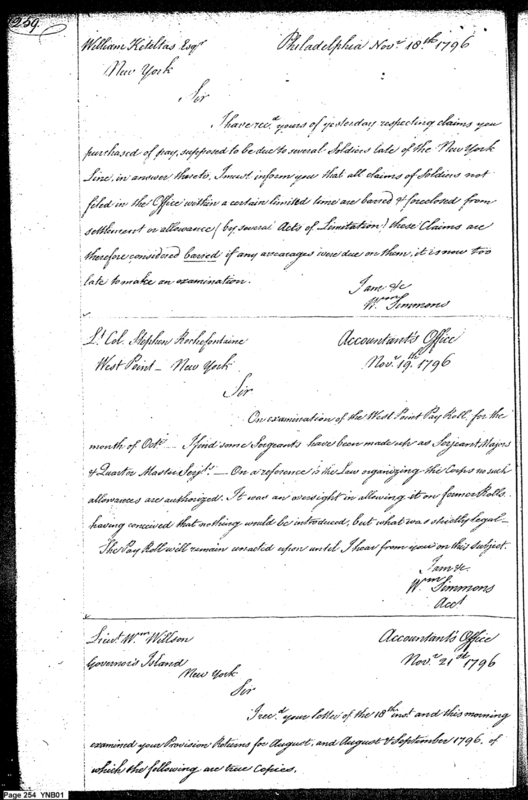 259.
William Keteltas Esqr. Philadelphia Novr. 18th. 1796
New York
Sir
I have recd. yours of yesterday respecting claims you
purchased of pay, supposed to be due to several Soldiers late of the New York
Line, in answer thereto, I must inform you that all claims of Soldiers not
filed in the Office within a certain limited time are barred & foreclosed from
settlement or allowance (by several Acts of Limitation) these Claims are
therefore considered barred if any arrearages were due on them, it is now too
late to make an examination.
I am &c
Wm. Simmons
Lt. Col. Stephen Rochefontaine Accountant's Office
West Point – New York Novr. 19th. 1796
Sir
On examination of the West Point Pay Roll, for the
month of Octr. – I find some Sergeants have been made up as Serjeant Majors
& Quarter Master Serjts. – On a reference to the Law organizing the Corps no such
allowances are authorized. It was an oversight in allowing it on former Rolls.
having conceived that nothing would be introduced, but what was strictly legal –
The Pay Roll will remain unacted upon until I hear from you on this subject.
I am &c.
Wm. Simmons
Acct.
Lieut. Wm. Willson Accountant's Office
Governor's Island Novr. 21st. 1796
New York
Sir
I recd. your letter of the 18th. inst and this morning
examined your Provision Returns for August, and August & September 1796. of
which the following are true Copies.
Page 254 YNB01